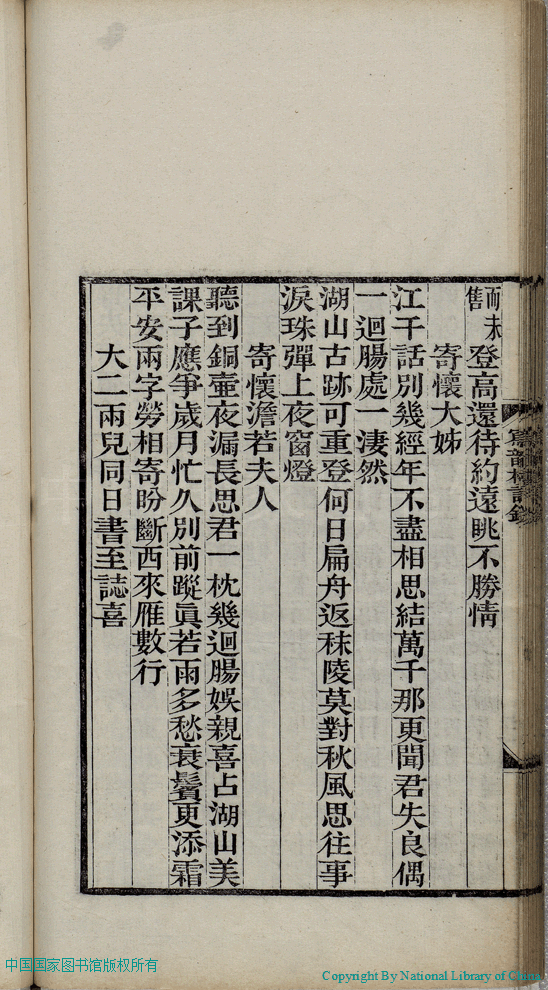 而未售登高還待約遠眺不勝情
寄懷大姊
江干話別幾經年不盡相思結萬千那更聞君失良偶
一迴腸處一淒然
湖山古跡可重登何日扁舟返秣陵莫對秋風思往事
淚珠彈上夜窗燈
寄懷澹若夫人
聽到銅壺夜漏長思君一枕幾迴腸娛親喜占湖山美
課子應爭歲月忙久別前蹤眞若雨多愁衰鬢更添霜
平安兩字勞相寄盼斷西來雁數行
大二兩兒同日書至誌喜
中国国家图书馆版权所有
Copyright By National Library of China